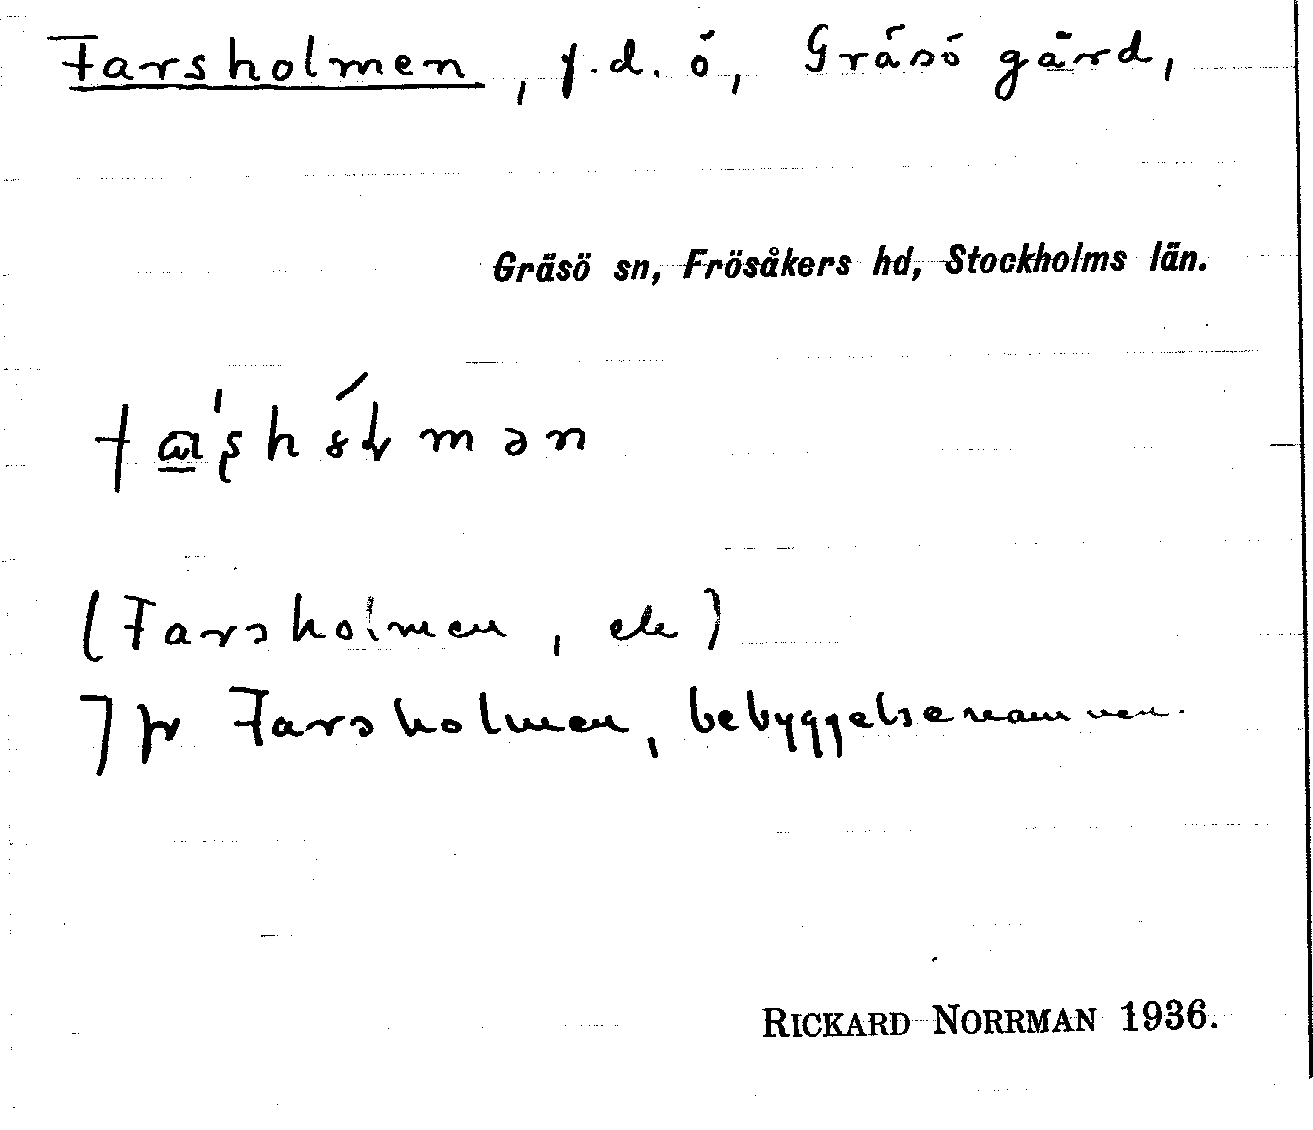 Farsholmen, f.d. ö, Gräsö gård,
Gräsö sn, Frösåkers hd, Stockholms län.
(Farsholmen, ek)
Jfr Farsholmen, bebyggelsenamnen.
RICKARD NORRMAN 1936.